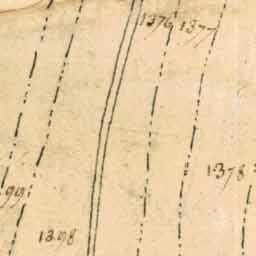 1376 1377
1378
99
1398